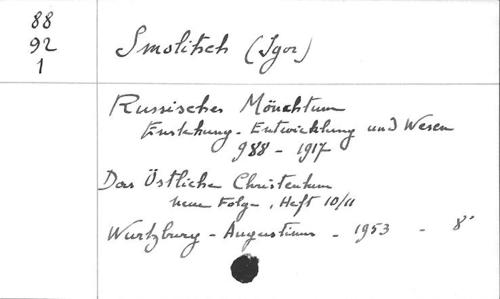 88
92
1
Smolitsch (Igor)
Russisches Mönchtum
Entstehung - Entwicklung und Wesen
988 - 1917
Das Östliche Christentum
neue Folge, Heft 10/11
Wurtzburg - Augustinus - 1953 - 8°